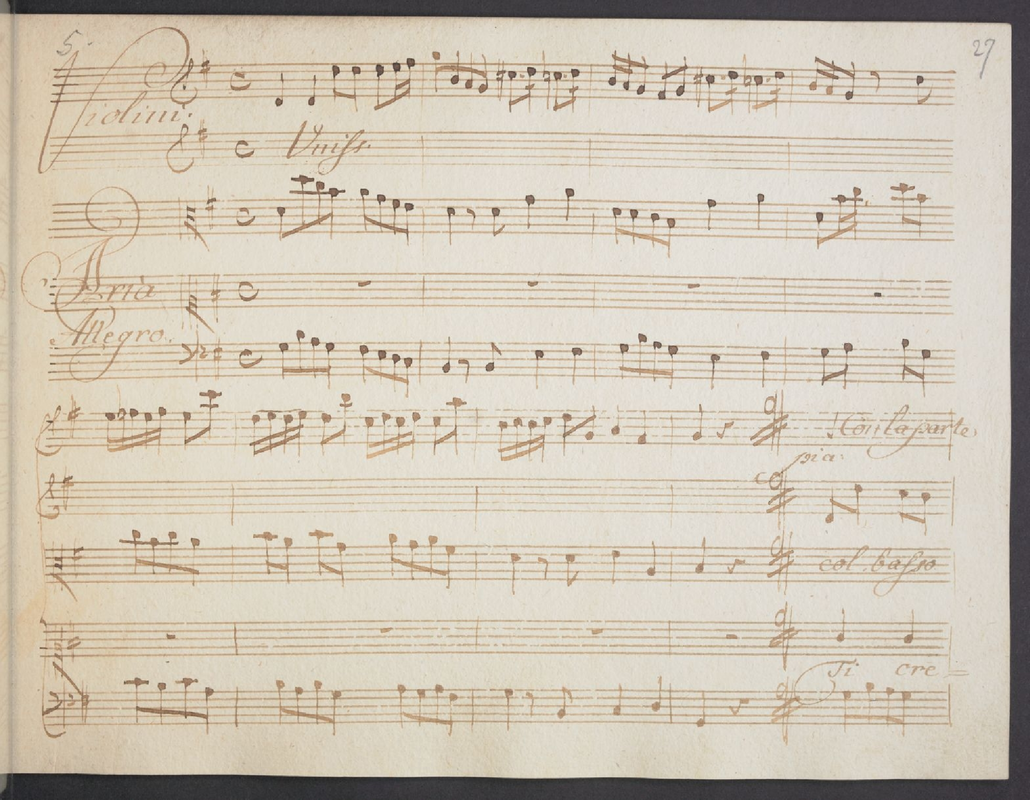 5.
27
Violini.
Uniss.
Aria
Allegro.
Con la parte
pia:
col basso
Ti cre=